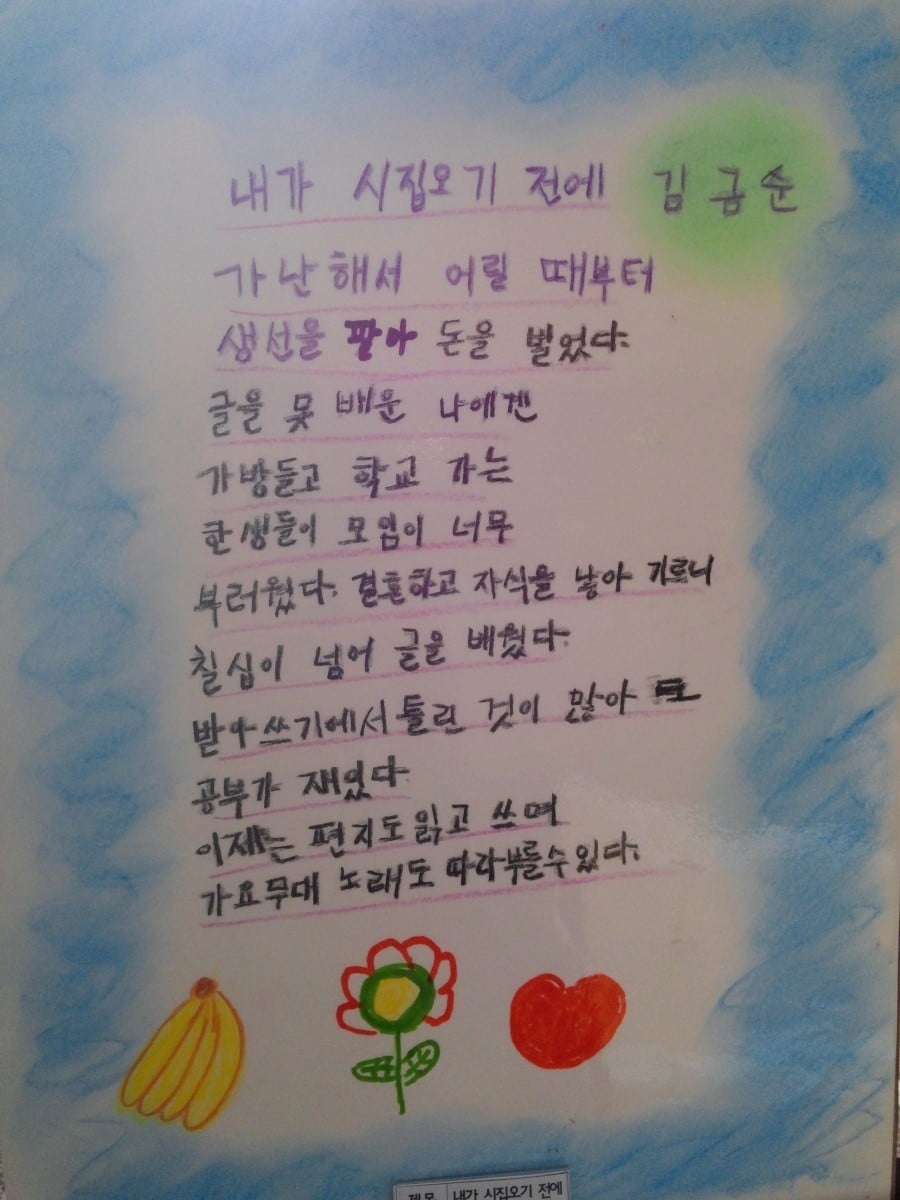 내가 시집오기 전에 김금순
가난해서 어릴 때부터
생선을 팔아 돈을 벌었다.
글을 못 배운 나에겐
가방들고 학교 가는
한생들이 모임이 너무
부러웠다. 결혼하고 자식을 낳아 기르니
칠십이 넘어 글을 배웠다.
받아쓰기에서 틀린 것이 많아
공부가 재있다
이제는 편지도 읽고 쓰며
가요무대 노래도 따라부를수 있다.
제목 내가 시집오기 전에